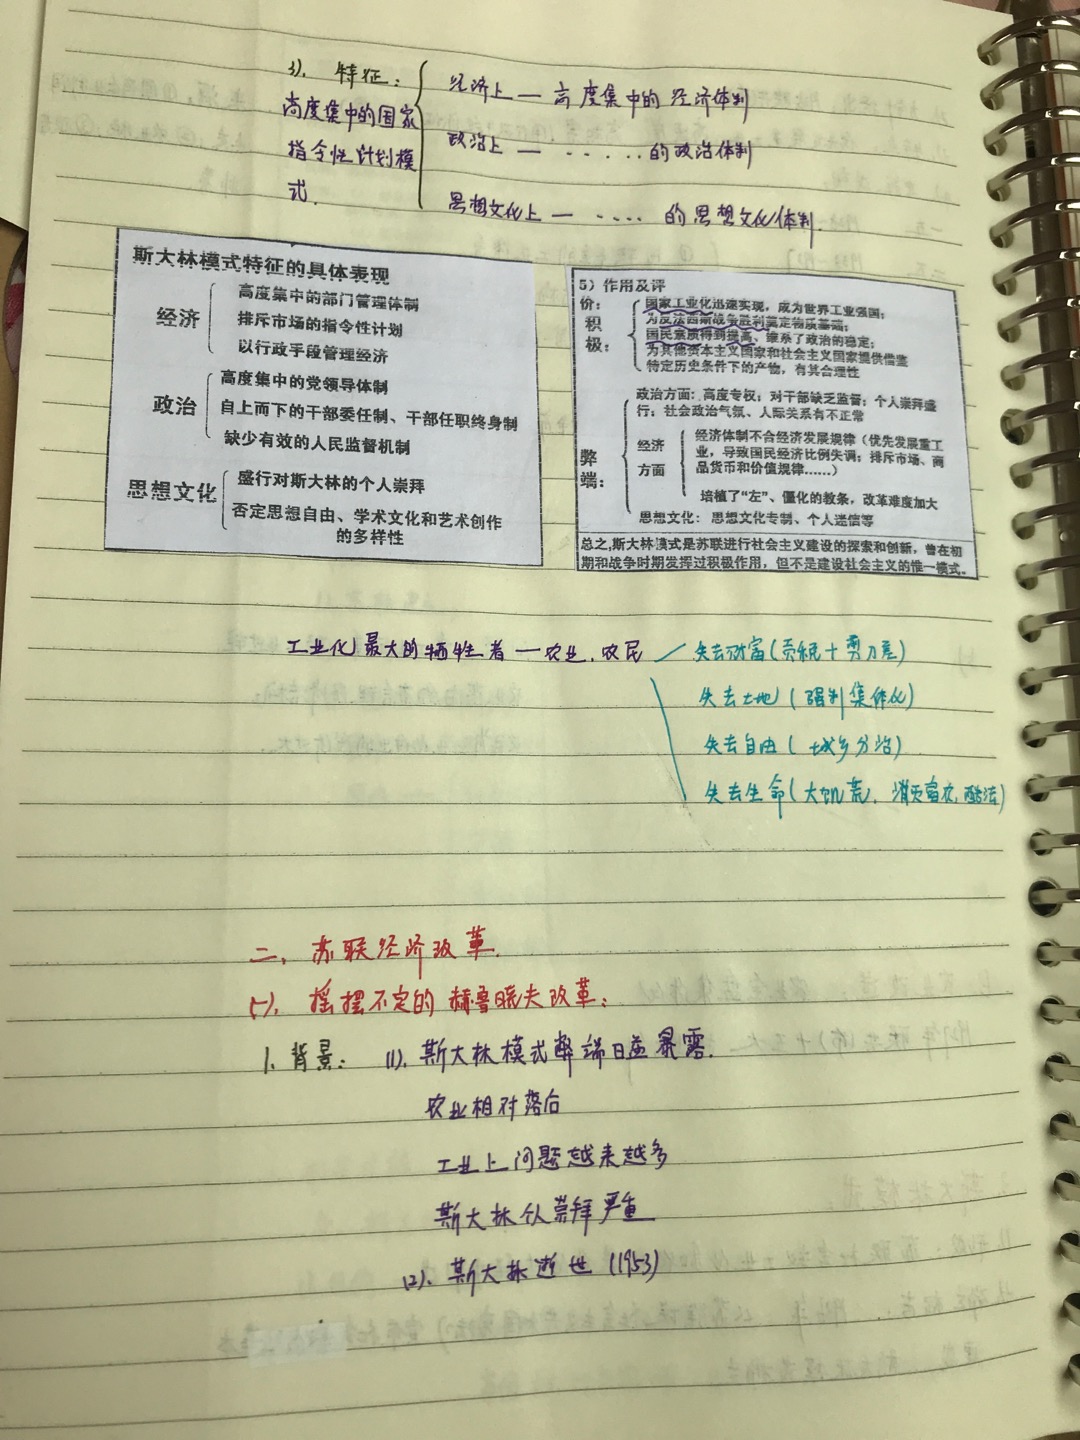 3). 特征：
高度集中的国家
指令性计划模
式.
经济上 — 高度集中的经济体制
政治上 — ······的政治体制
思想文化上 — ····的思想文化体制.
斯大林模式特征的具体表现
经济
高度集中的部门管理体制
排斥市场的指令性计划
以行政手段管理经济
政治
高度集中的党领导体制
自上而下的干部委任制、干部任职终身制
缺少有效的人民监督机制
思想文化
盛行对斯大林的个人崇拜
否定思想自由、学术文化和艺术创作
的多样性
5）作用及评
价：
积
极：
国家工业化迅速实现，成为世界工业强国；
为反法西斯战争胜利奠定物质基础；
国民素质得到提高、维系了政治的稳定；
为其他资本主义国家和社会主义国家提供借鉴
特定历史条件下的产物，有其合理性
弊
端：
政治方面：高度专权；对干部缺乏监督；个人崇拜盛
行；社会政治气氛、人际关系有不正常
经济
方面
经济体制不合经济发展规律（优先发展重工
业，导致国民经济比例失调；排斥市场、商
品货币和价值规律……）
培植了“左”、僵化的教条，改革难度加大
思想文化：思想文化专制、个人迷信等
总之,斯大林模式是苏联进行社会主义建设的探索和创新，曾在初
期和战争时期发挥过积极作用，但不是建设社会主义的惟一模式。
工业化最大的牺牲者 — 农业、农民
失去财富(贡税+剪刀差)
失去土地(强制集体化)
失去自由(城乡分治)
失去生命(大饥荒、消灭富农,酷法)
二、苏联经济改革.
(一). 摇摆不定的赫鲁晓夫改革：
1. 背景： (1). 斯大林模式弊端日益暴露.
农业相对落后
工业上问题越来越多
斯大林个人崇拜严重
(2). 斯大林逝世 (1953)